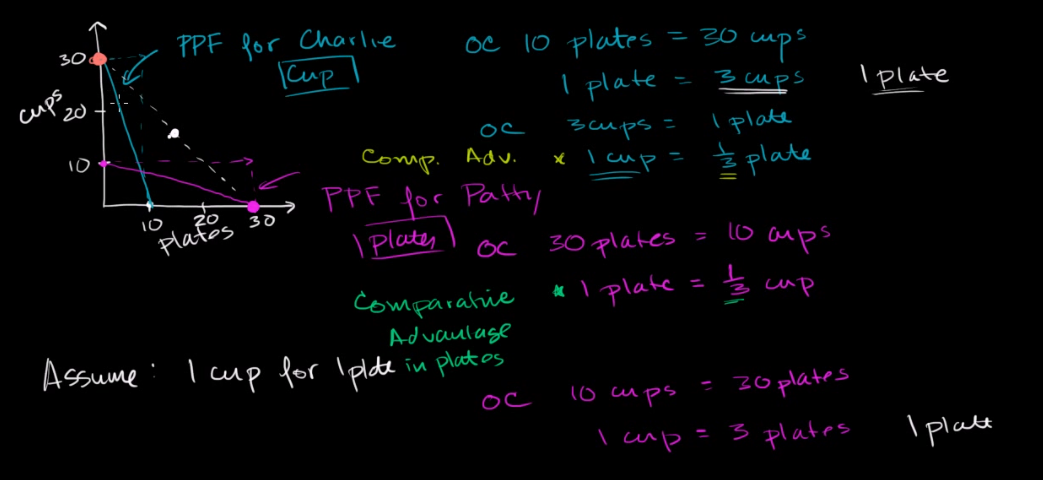 30
cups
20
10
10
20
30
plates
PPF for Charlie
Cup
OC 10 plates = 30 cups
1 plate = 3 cups
1 plate
OC 3 cups = 1 plate
Comp. Adv. * 1 cup = 1/3 plate
PPF for Patty
Plates
OC 30 plates = 10 cups
* 1 plate = 1/3 cup
Comparative
Advantage
in plates
Assume: 1 cup for 1 plate
OC 10 cups = 30 plates
1 cup = 3 plates
1 plate